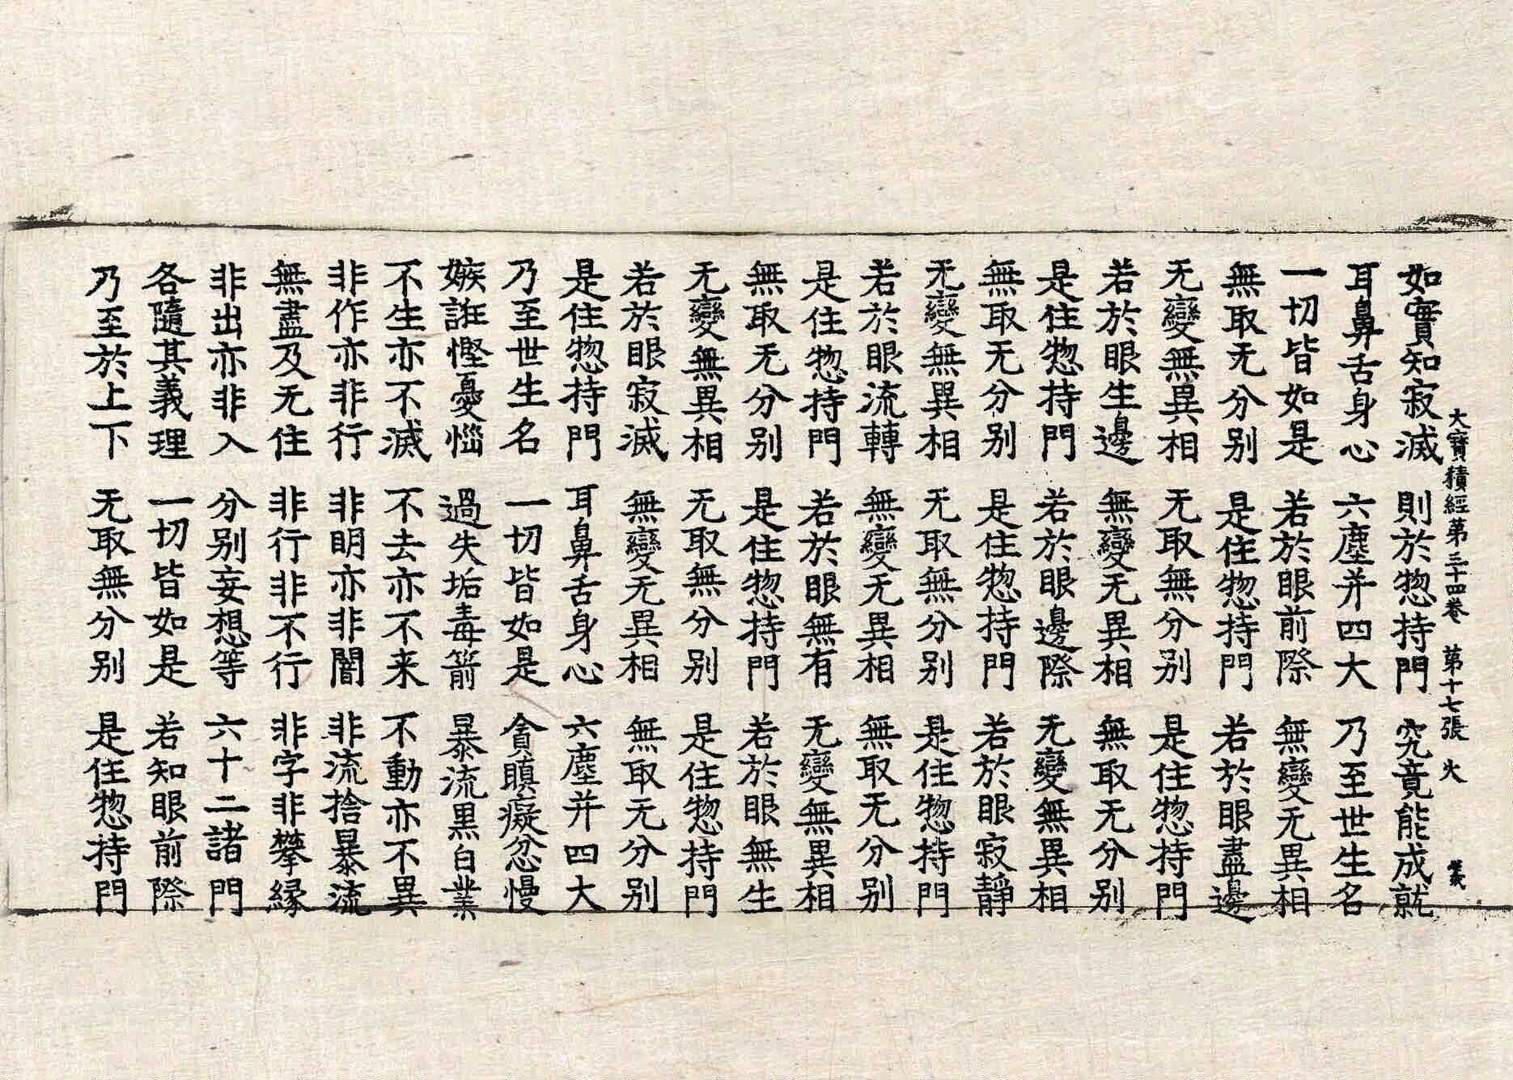 大寶積經第三十四卷 第十七張 火
如實知寂滅 則於惣持門 究竟能成就
耳鼻舌身心 六塵并四大 乃至世生名
一切皆如是 若於眼前際 無變无異相
無取无分别 是住惣持門 若於眼盡邊
无變無異相 无取無分别 是住惣持門
若於眼生邊 無變无異相 無取无分别
是住惣持門 若於眼邊際 无變無異相
無取无分别 是住惣持門 若於眼寂靜
无變無異相 无取無分别 是住惣持門
若於眼流轉 無變无異相 無取无分别
是住惣持門 若於眼無有 无變無異相
無取无分别 是住惣持門 若於眼無生
无變無異相 无取無分别 是住惣持門
若於眼寂滅 無變无異相 無取无分别
是住惣持門 耳鼻舌身心 六塵并四大
乃至世生名 一切皆如是 貪瞋癡忿慢
嫉誑慳憂惱 過失垢毒箭 暴流黑白業
不生亦不滅 不去亦不来 不動亦不異
非作亦非行 非明亦非闇 非流捨暴流
無盡及无住 非行非不行 非字非攀縁
非出亦非入 分别妄想等 六十二諸門
各隨其義理 一切皆如是 若知眼前際
乃至於上下 无取無分别 是住惣持門